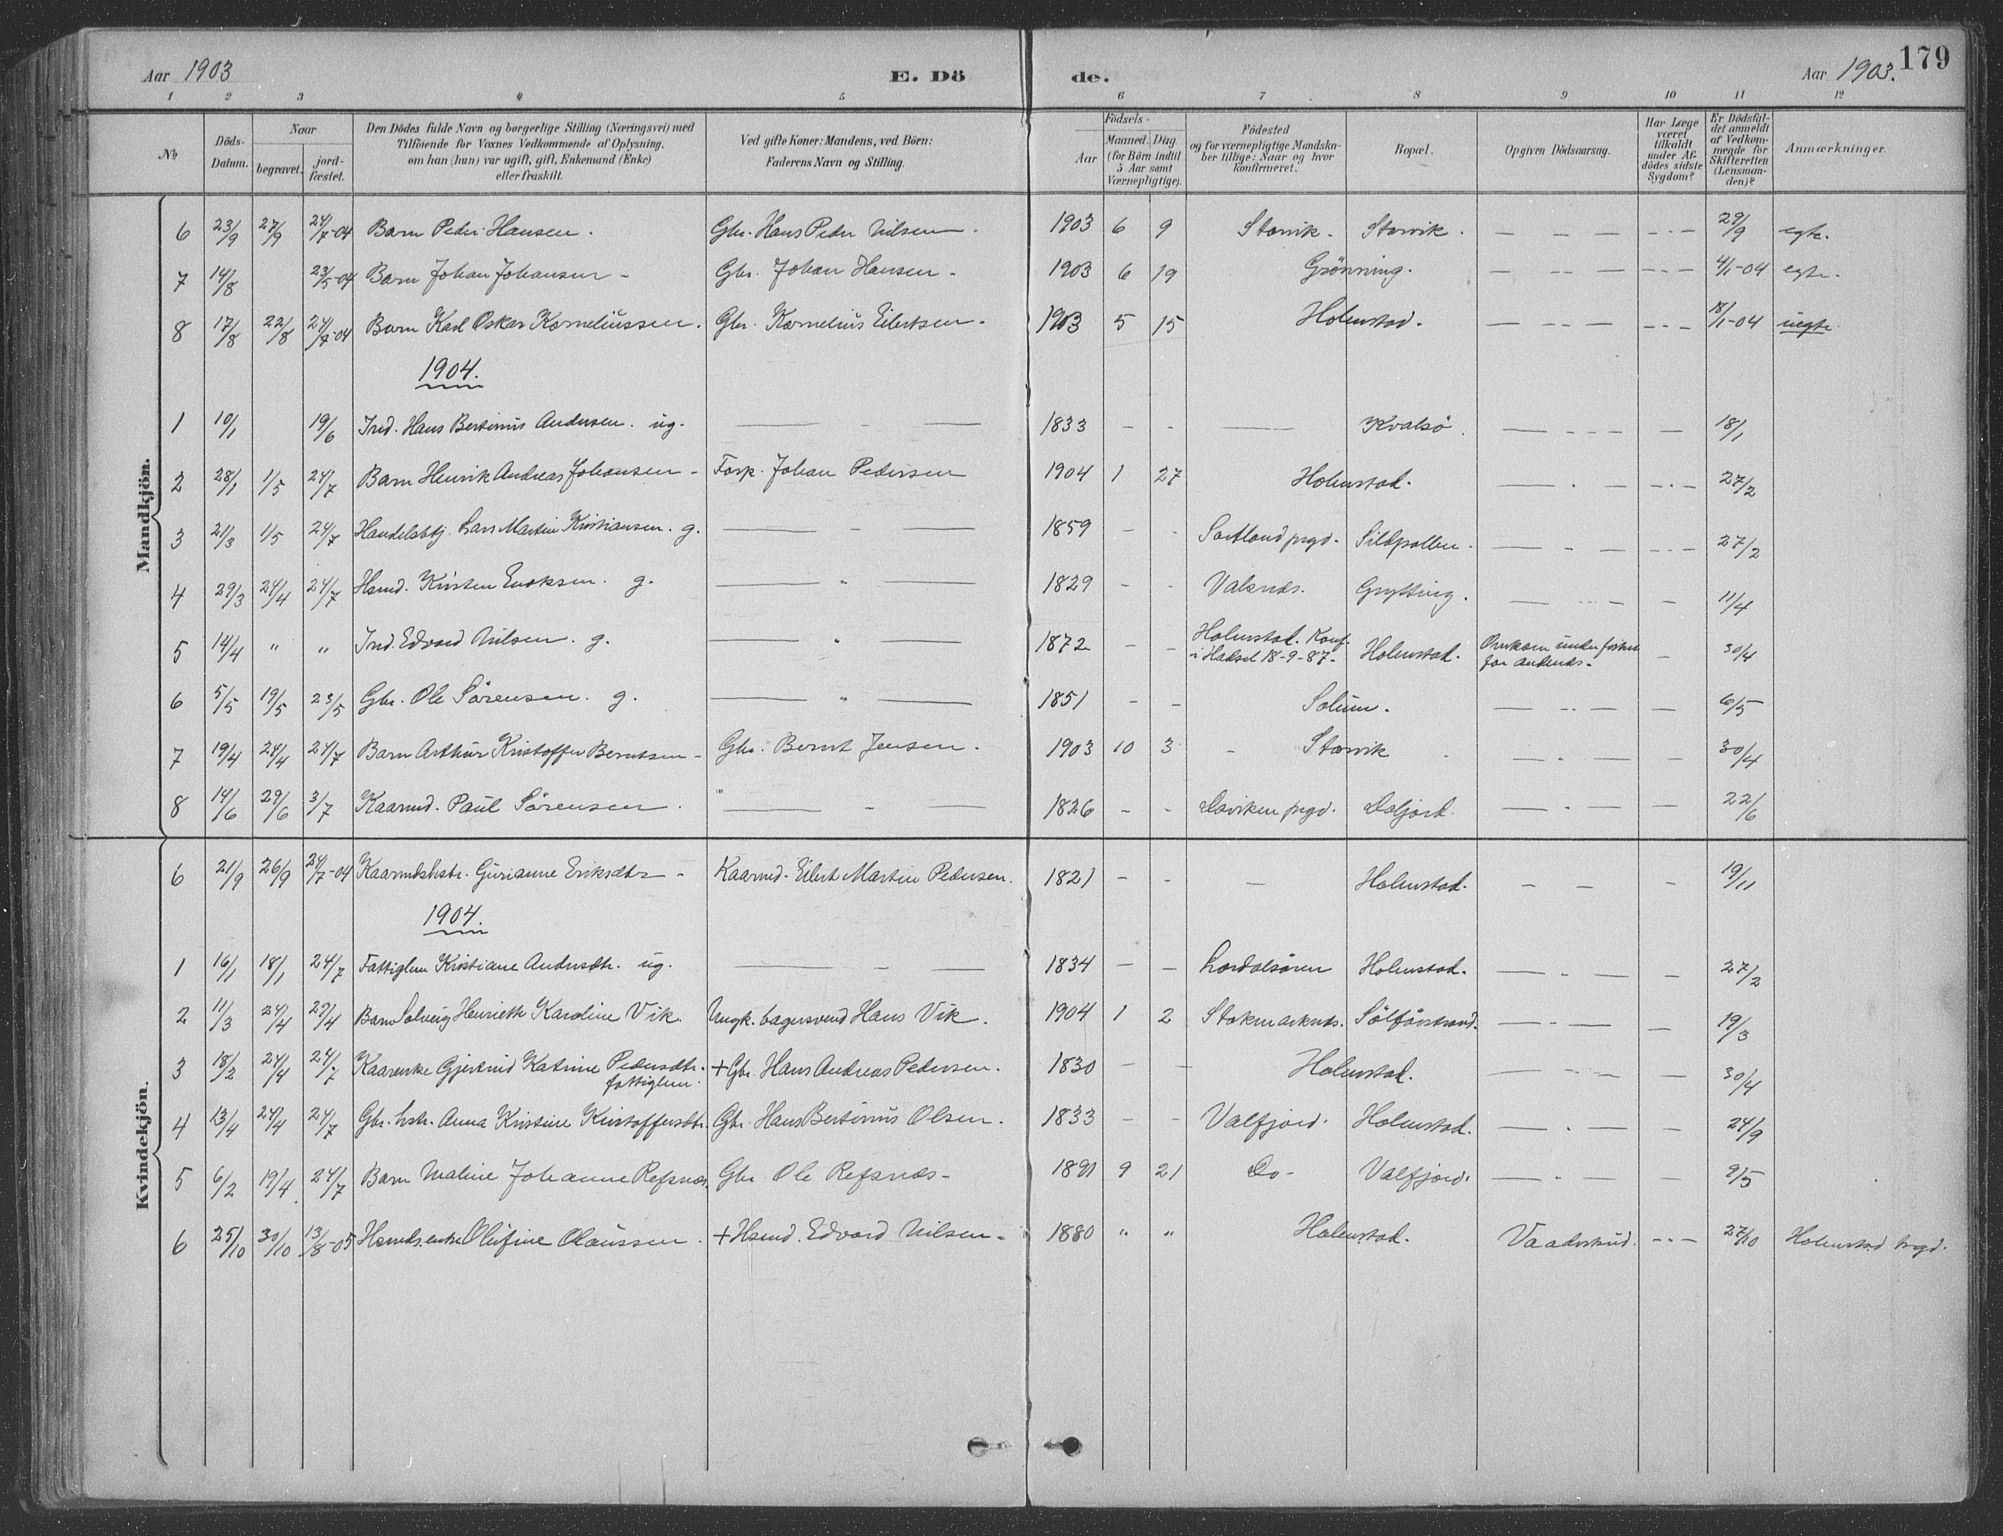 Aar 1903 E. Dö de. Aar 1903. 179
1 2 3 4 5 6 7 8 9 10 11 12
No Döds-Datum. Naar begravet. jord-fæstet. Den Dödes fulde Navn og borgerlige Stilling (Næringsvei) med Tilföiende for Voxnes Vedkommende af Oplysning, om han (hun) var ugift, gift, Enkemand (Enke) eller fraskilt. Ved gifte Koner: Mandens, ved Börn: Faderens Navn og Stilling. Födsels- Aar Maaned. Dag (for Börn indtil 5 Aar samt Værnepligtige). Födested og for værnepligtige Mandskaber tillige: Naar og hvor konfirmeret. Bopæl. Opgiven Dödsaarsag. Har Læge været tilkaldt under Afdödes sidste Sygdom? Er Dödsfaldet anmeldt af Vedkommende for Skifteretten (Lensmanden)? Anmærkninger.
Mandkjön.
6 23/9 27/9 24/7-04 Barn Peder Hansen. Gbr. Hans Peder Nilsen. 1903 6 9 Storvik. Storvik. — — — --- 29/9 egte.
7 14/8 23/5-04 Barn Johan Johansen - Gbr. Johan Hansen - 1903 6 19 Grönning. — — — --- 4/1-04 egte.
8 17/8 22/8 24/7-04 Barn Karl Oskar Korneliussen. Gbr. Kornelius Eilertsen - 1903 5 15 Holmstad. — — — --- 18/1-04 uegte.
1904.
1 10/1 19/6 Ind. Hans Bertinus Andersen. ug. — - — 1833 - - — Kvalsö. — — — — 18/1
2 28/1 1/5 24/7 Barn Henrik Andreas Johansen - Forp. Johan Pedersen 1904 1 27 Holmstad. — . — --- 27/2
3 21/3 1/5 24/7 Handelsbtj. Lars Martin Kristiansen. g. — - — 1859 - - Sortland prgd. Sildpollen. — - — --- 27/2
4 29/3 24/4 24/7 Hsmd. Kristen Enoksen. g. — " — 1829 - - Valsnes. Grytting. — - — - 11/4
5 14/4 " " Ind. Edvard Nilsen. g. — " — 1872 - - Holmstad. Konf. i Hadsel 18-9-87- Holmstad. Omkom under fiskeri for Andenes. - 30/4
6 5/5 19/5 23/5 Gbr. Ole Sörensen. g. — " — 1851 - - Solum. — - — - 6/5
7 19/4 24/4 24/7 Barn Arthur Kristoffer Berntsen - Gbr. Bernt Jensen. 1903 10 3 - Storvik — - — - 30/4
8 14/6 29/6 3/7 Kaarmd. Paul Sörensen. — - — 1826 - - Daviken prgd. Deljord. — - — - 22/6
Kvindekjön.
6 21/9 26/9 24/7-04 Kaarmdshstr. Gurianne Eriksdtr - Kaarmd. Eilert Martin Pedersen. 1821 - - - Holmstad. - - - 19/11
1904.
1 16/1 18/1 24/7 Fattiglem Kristiane Andersdtr. ug. — - — 1834 - - Lærdalsören Holmstad. — - — - 27/2
2 11/3 24/4 29/4 Barn Solveig Henriette Karoline Vik. Ungk. bagersvend Hans Vik. 1904 1 2 Stokmarknes. Sölförstrand. — - — - 19/3
3 18/2 24/4 24/7 Kaarenke Gjertrud Katrine Pedersdtr. fattiglem. + Gbr. Hans Andreas Pedersen. 1830 - - Holmstad. — - — - 30/4
4 13/4 24/4 24/7 Gbr. hstr. Anna Kristine Kristoffersdtr. Gbr. Hans Bertinus Olsen. 1833 - - Valfjord. Holmstad. — - — - 24/9
5 6/2 19/4 24/7 Barn Maline Johanne Refsnes. Gbr. Ole Refsnes - 1891 9 21 Do- Valfjord. — - — - 9/5
6 25/10 30/10 13/8-05 Hsmds.enke Olufine Olaussen. + Hsmd. Edvard Nilsen - 1880 " " Holmstad. Vaadeskud. --- 27/10 Holmstad brgd.